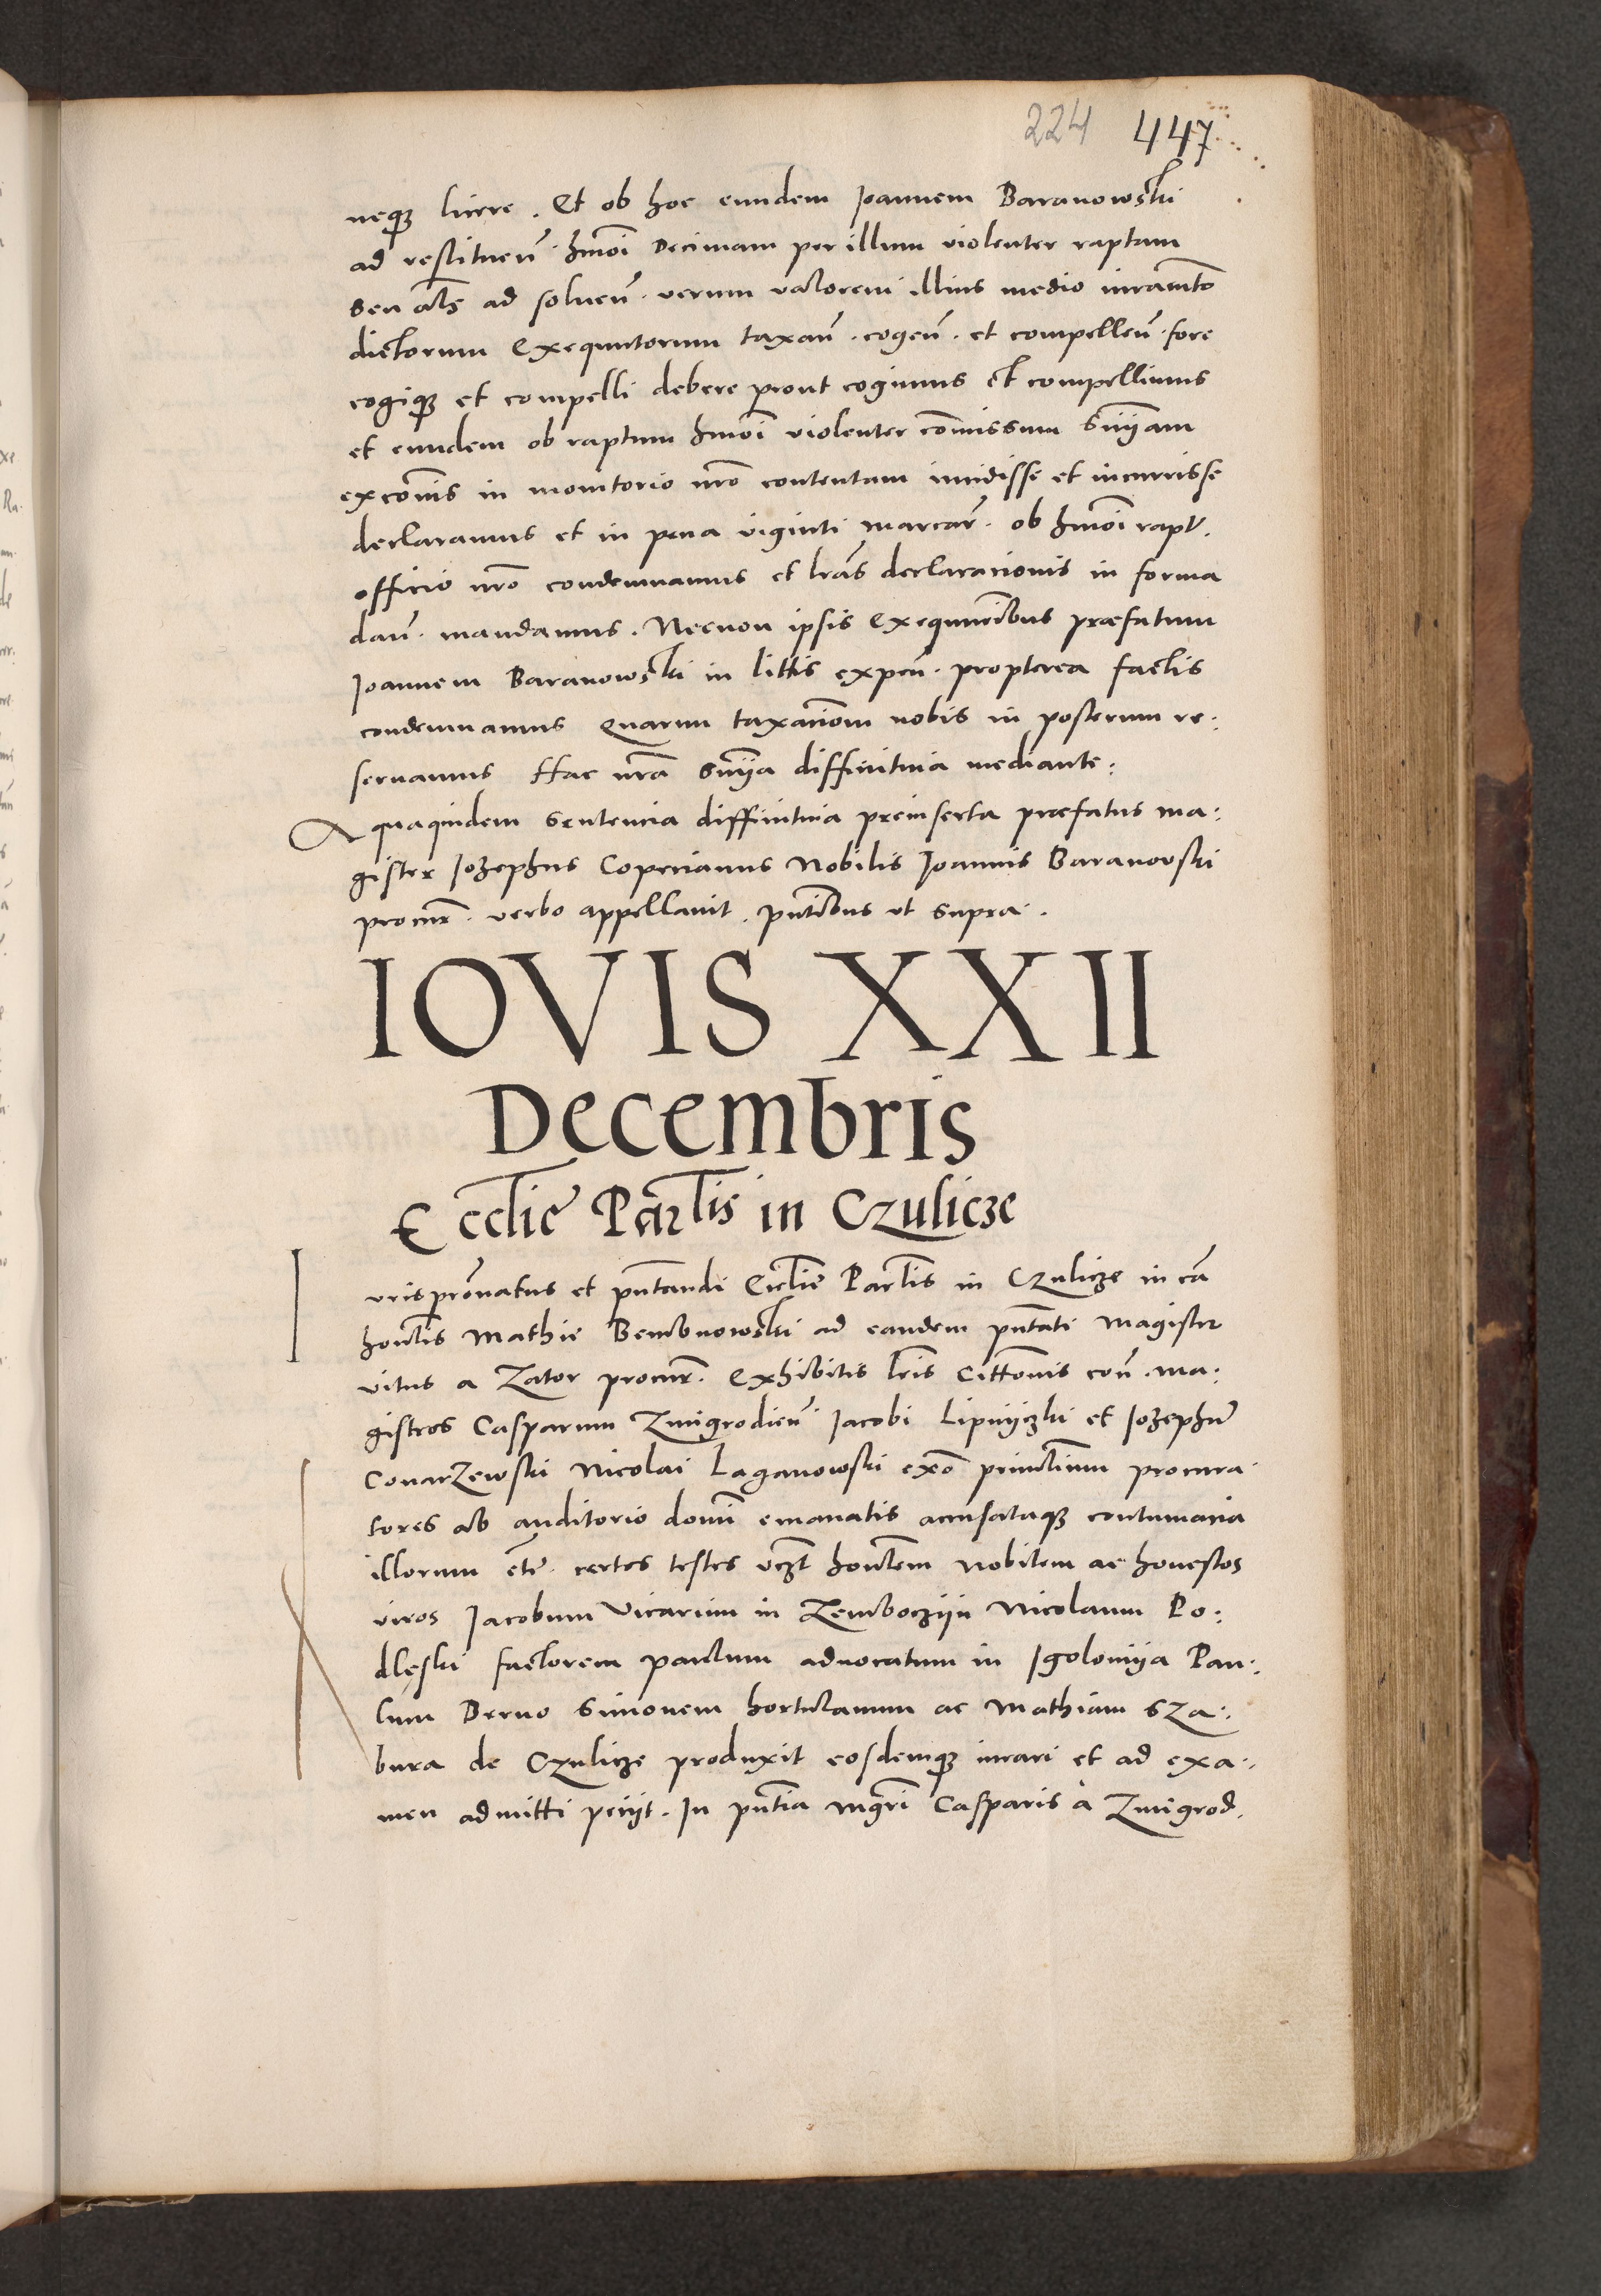 224 447
neqꝫ licere. Et ob hoc eundem Joannem Baranowski
ad restituen̄. hmōi Decimam per illum violenter raptam
seu al̄s ad soluen̄. verum valorem illius medio iuramīto
dictorum Exequutorum taxan̄. cogen̄. et compellen̄. fore
cogiqꝫ et compelli debere prout cogimus et compellimus
et eundem ob raptum hmōi violenter cōmissum sn̄iam
excōmis in monitorio nr̄o contentam incidisse et incurrisse
declaramus et in pena viginti marcar̄. ob hmōi rapt̄.
officio nr̄o condemnamus et lr̄as declaracionis in forma
dan̄. mandamus. Necnon ipsis Exequutoribus præfatum
Joannem Baranowski in littis expen̄. propterea factis
condemnamus Quarum taxaciōm nobis in posterum re:
seruamus Hac nr̄a sn̄ia diffinitiua mediante:
A quaquidem sentencia diffinitiua preinserta præfatus ma:
gister Jozephus Copecianus Nobilis Joannis Baranowski
procur̄. verbo appellauit. pn̄tibus vt supra.
IOVIS XXII
Decembris
Eccl̄ie Par̄lis in Czulicze
I vrispr̄onatus et pn̄tandi Eccl̄ie Par̄lis in Czulicze in cā
hon̄lis Mathie Bembnowski ad eandem pn̄tati Magister
vitus a Zator procur̄. Exhibitis lr̄is Cittōnis con̄. ma:
gistros Casparum Zmigrodien̄. Jacobi Lipniczki et Jozephū
Conarzewski Nicolai Laganowski exō principalium procura
tores ab auditorio domī emanatis accusataqꝫ contumacia
illorum et̄c. certos testes vꝫt hon̄lem Nobilem ac honestos
viros Jacobum Vicarium in Zemboczyn Nicolaum Po:
dleski factorem paulum aduocatum in Igolomya Pau:
lum Deruo Simonem hortulanum ac Mathiam Sza:
bura de Czulicze produxit eosdemqꝫ iurari et ad exa:
men admitti peciit. In pn̄tia mgr̄i Casparis à Zmigrod.